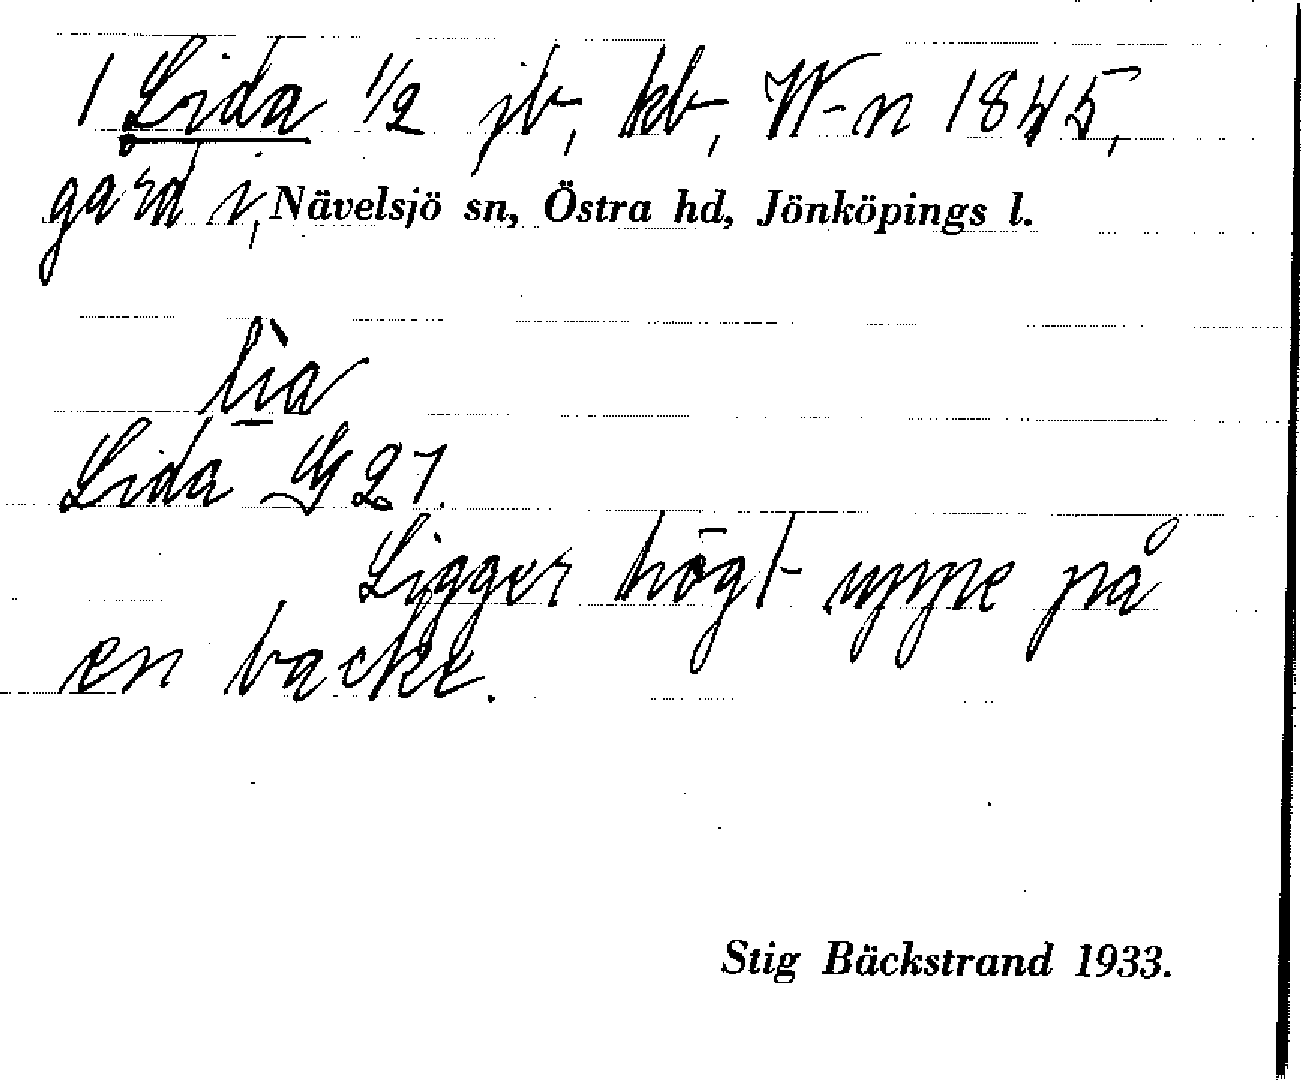 1 Lida 1/2 jb, kb, W-n 1845,
gård i, Nävelsjö sn, Östra hd, Jönköpings l.
lìa
Lida G 27.
Ligger högt uppe på
en backe.
Stig Bäckstrand 1933.